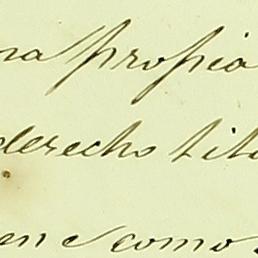 na propia
derecho tit
en como